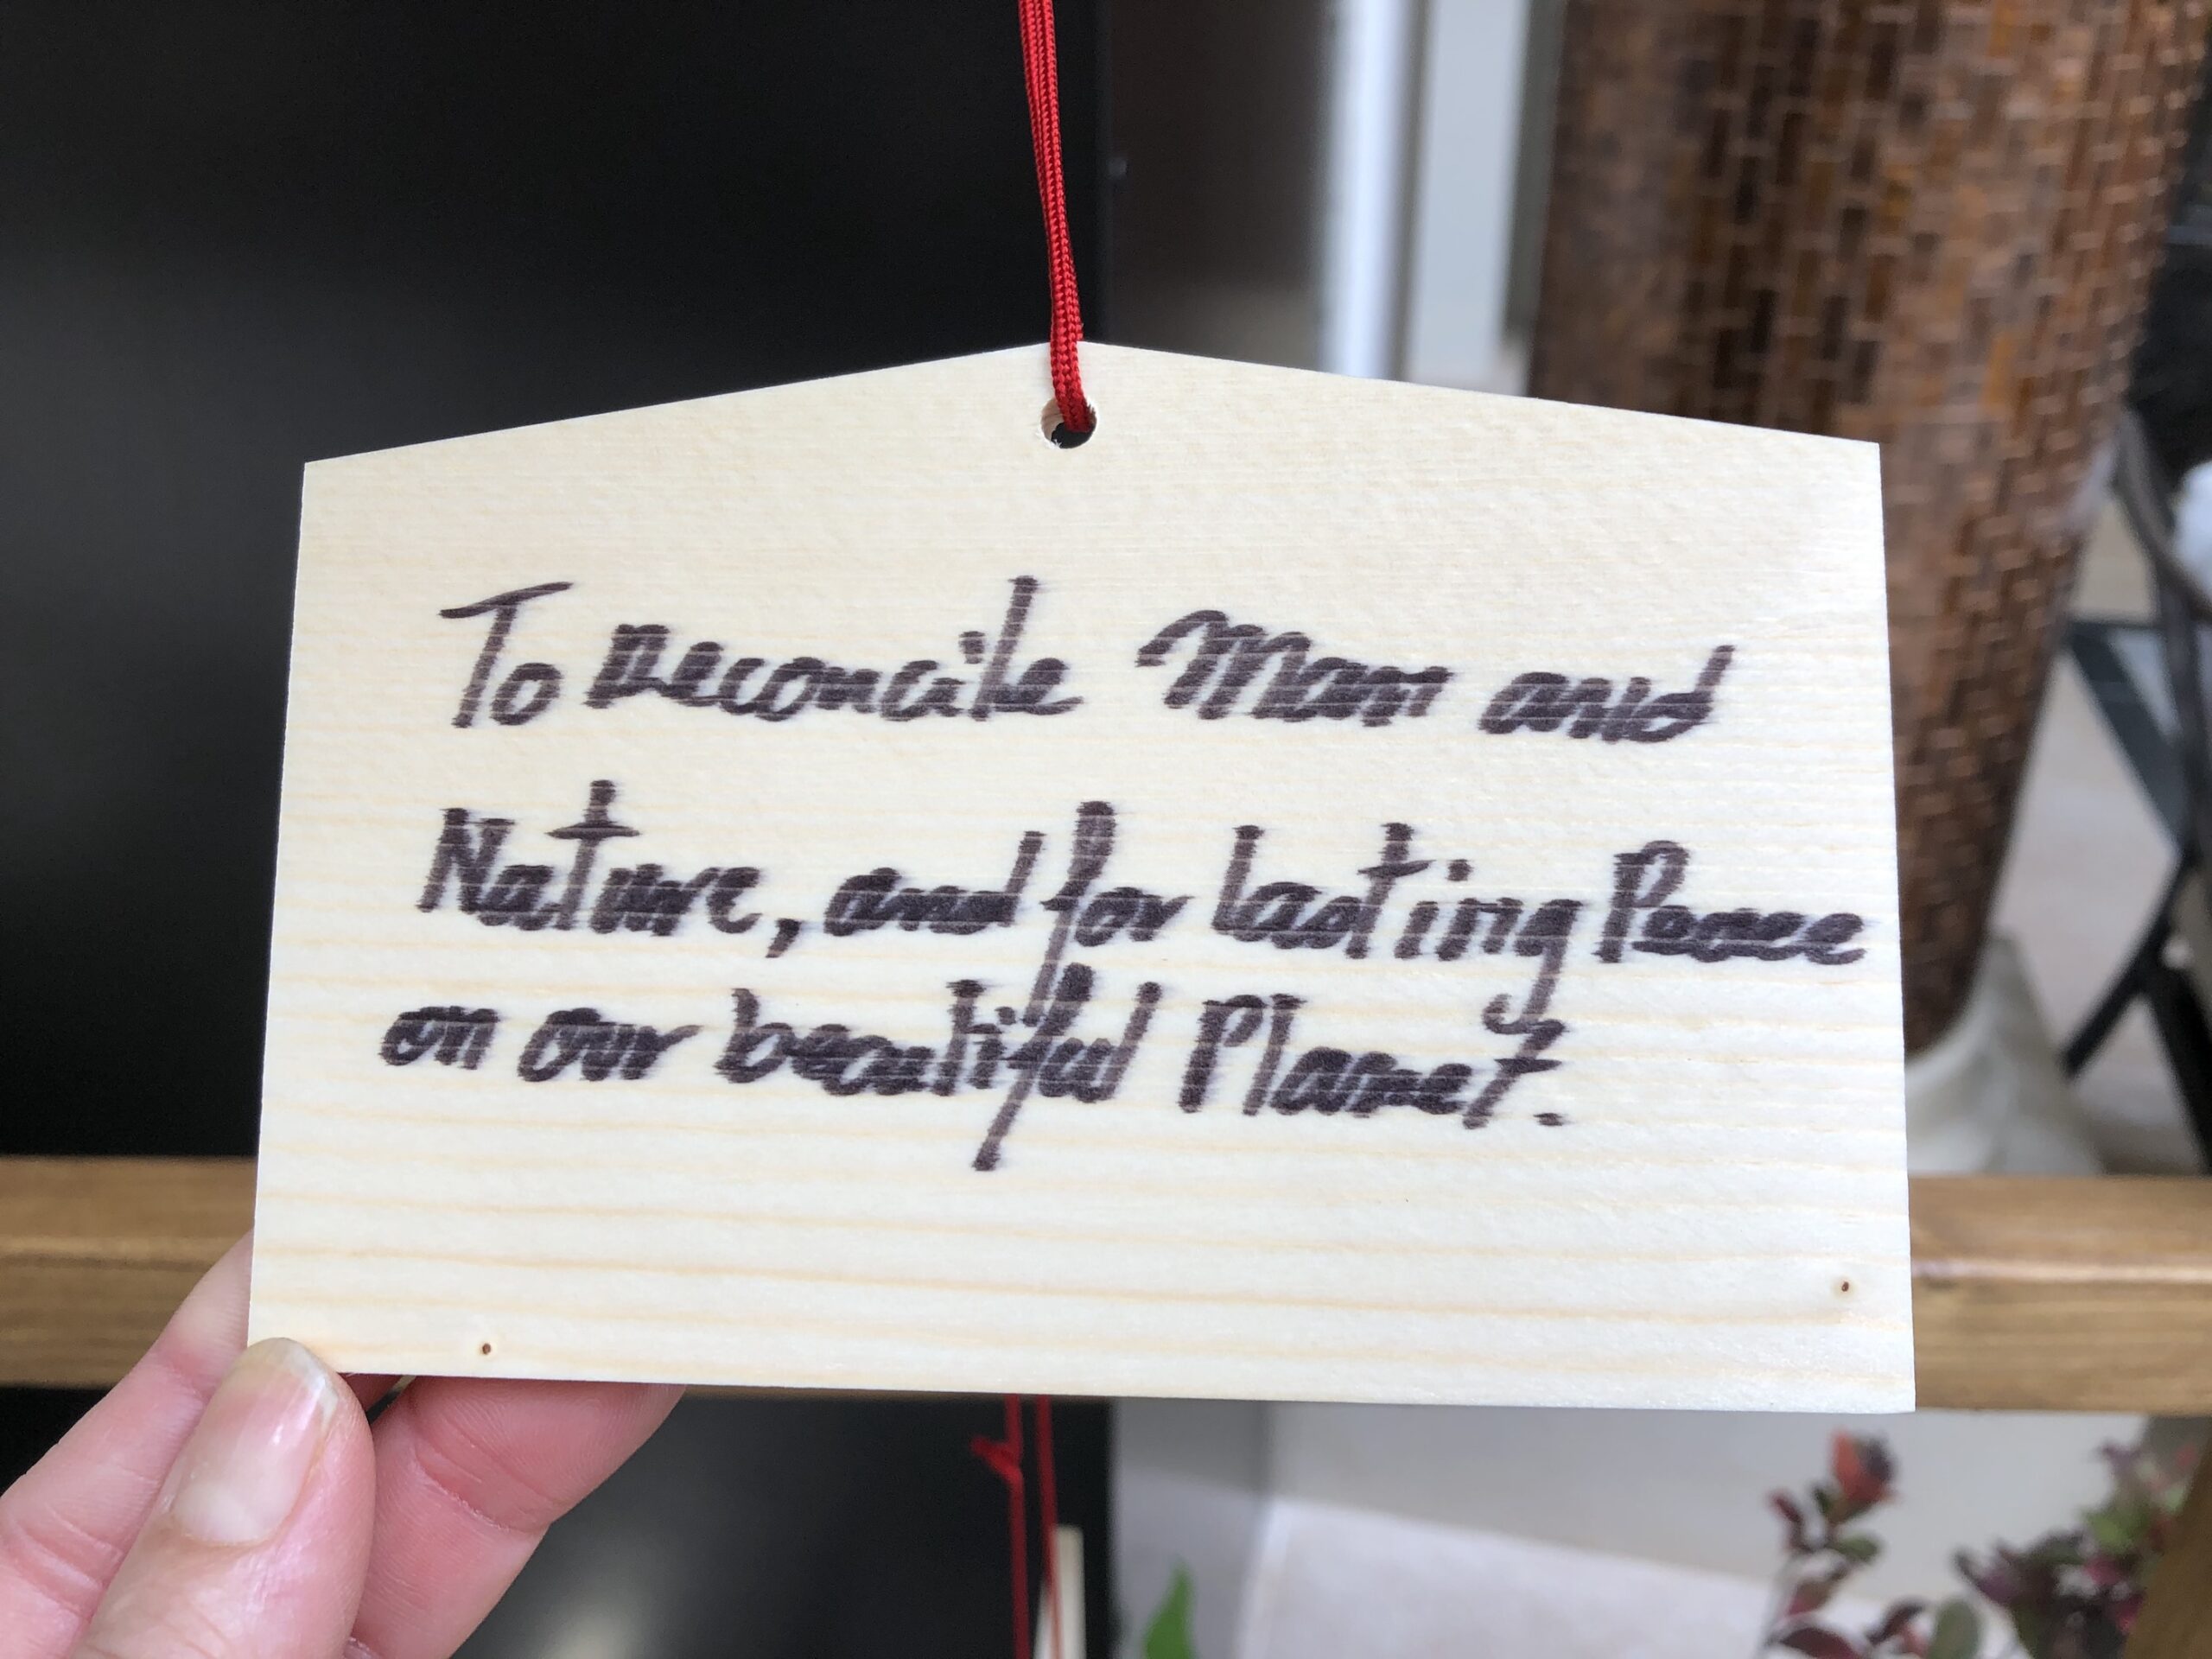 To reconcile Man and
Nature, and for lasting Peace
on our beautiful Planet.